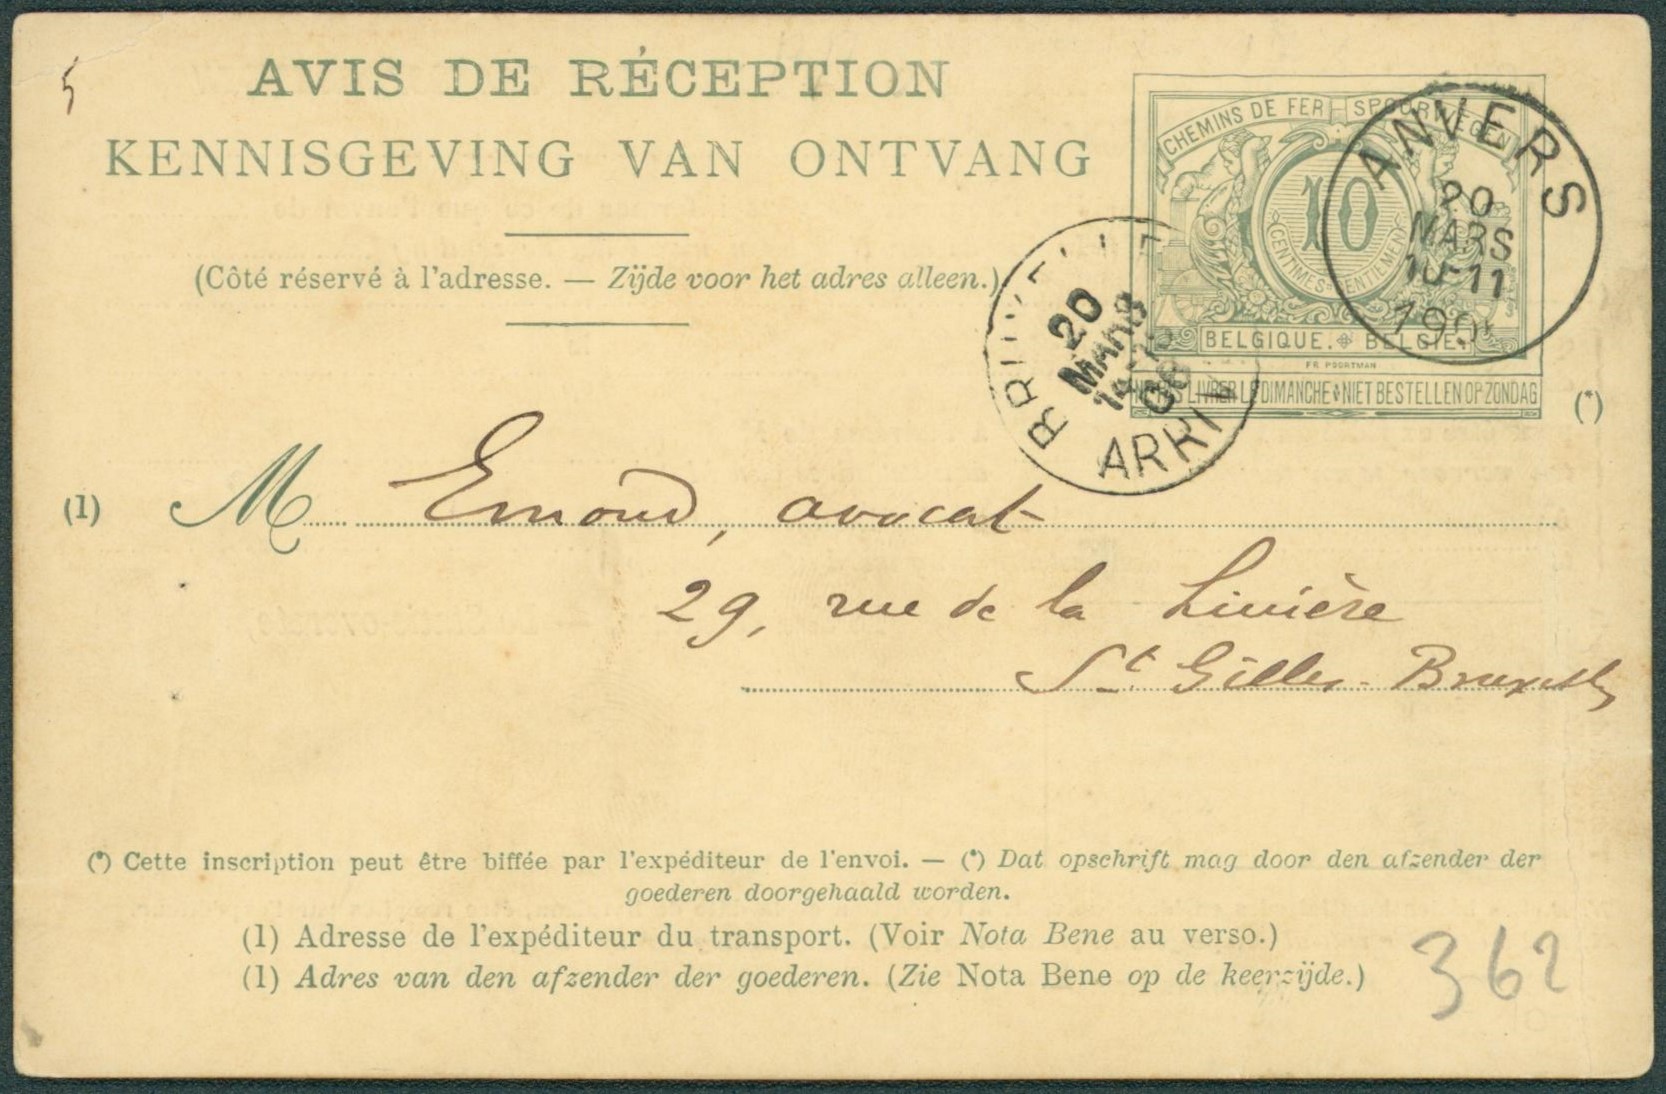 5
AVIS DE RÉCEPTION
KENNISGEVING VAN ONTVANG
(Côté réservé à l'adresse. — Zijde voor het adres alleen.)
CHEMINS DE FER SPOORWEGEN
10
CENTIMES CENTIEMEN
BELGIQUE. BELGIË.
FR. POORTMAN
LIVRER LE DIMANCHE NIET BESTELLEN OP ZONDAG
(*)
ANVERS
20
MARS
10-11
20
MARS
ARRI
(1) M Emond, avocat
29, rue de la Linière
St Gilles-Bruxelles
(*) Cette inscription peut être biffée par l'expéditeur de l'envoi. — (*) Dat opschrift mag door den afzender der
goederen doorgehaald worden.
(1) Adresse de l'expéditeur du transport. (Voir Nota Bene au verso.)
(1) Adres van den afzender der goederen. (Zie Nota Bene op de keerzijde.)
362